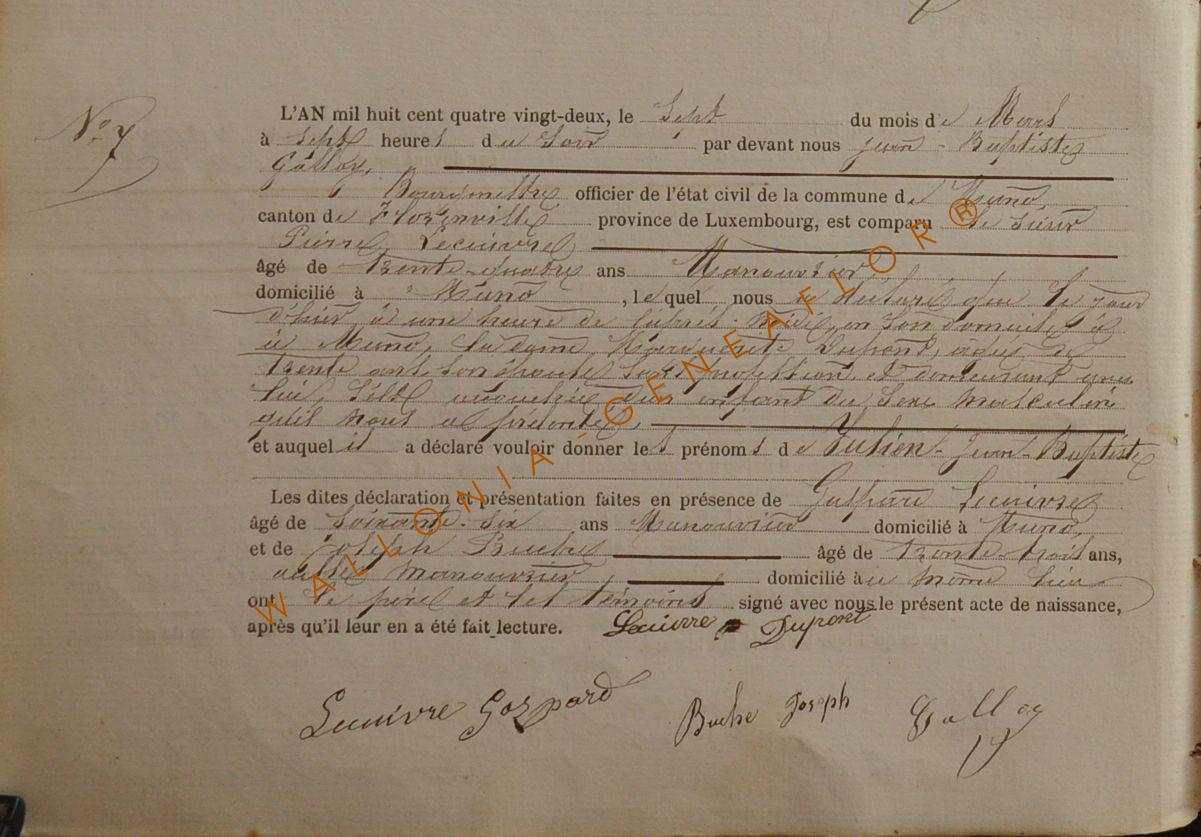 No 7
L'AN mil huit cent quatre vingt-deux, le Sept du mois de Mars
à Sept heures du Soir par devant nous Jean-Baptiste
Galloy,
Bourgmestre officier de l'état civil de la commune de Muno,
canton de Florenville province de Luxembourg, est comparu le Sieur
Pierre Lecuivre,
âgé de trente-quatre ans Manouvrier,
domicilié à Muno, lequel nous a déclaré que le jour
d'hier, à une heure de l'après-midi, en son domicile à
à Muno, la dame Marguerite Dupont, âgée de
trente ans, son épouse, sans profession et demeurant avec
lui, s'est accouchée d'un enfant du sexe masculin
qu'il nous a présenté,
et auquel il a déclaré vouloir donner les prénoms de Julien-Jean-Baptiste
Les dites déclaration et présentation faites en présence de Gaspard Lecuivre
âgé de soixante-six ans Manouvrier domicilié à Muno,
et de Joseph Buche âgé de trente-trois ans,
aussi Manouvrier domicilié au même lieu
ont le père et les témoins signé avec nous le présent acte de naissance,
après qu'il leur en a été fait lecture. Lecuivre = Dupont
Lecuivre Gaspard Buche Joseph Galloy
WALLONIA-GENEAFLOR®